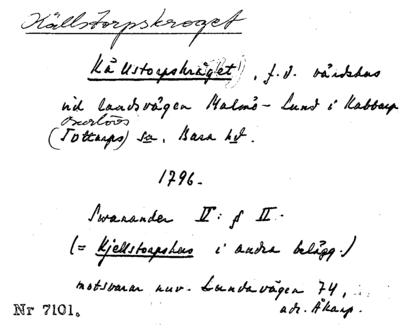 Källstorpskroget
Källstorpskroget, f.d. värdshus
vid landsvägen Malmö - Lund i Kabbarp
Burlövs
(Tottarps) sn. Bara hd.
1796.
Swanander II: § II.
(= Kjellstorpshus i andra belägg.)
motsvarar nuv. Lundavägen 74,
Nr 7101. adr. Åkarp.